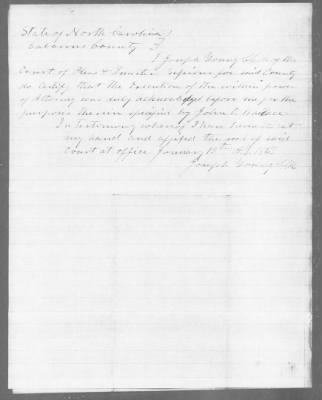 State of North Carolina }
Cabarrus County }
I Joseph Young Clerk of the
Court of Pleas & Quarter Sessions for said County
do Certify that the Execution of the within power
of Attorney was duly acknowledged before me for the
purposes therein specified by John C. Wallace
In testimony whereof I have hereunto set
my hand and affixed the seal of said
Court at office January 12th A.D.
Joseph Young Clk